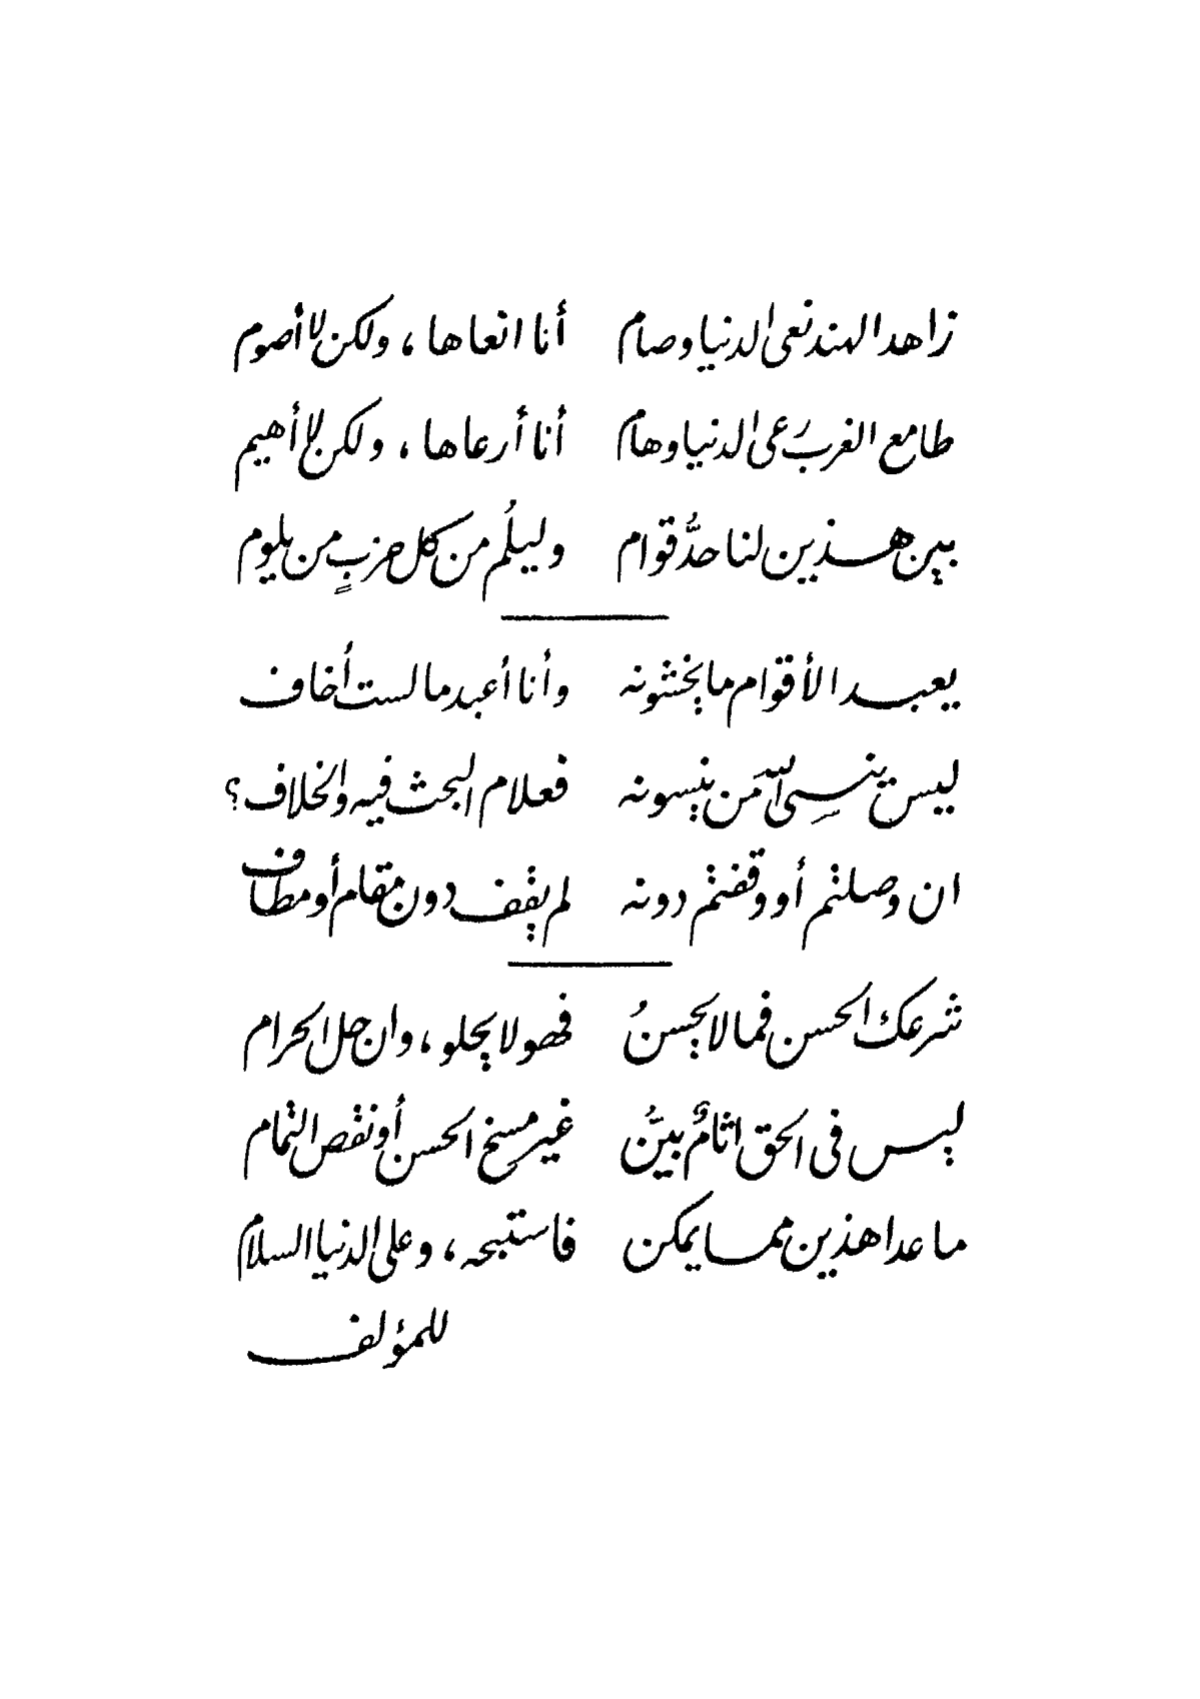 زاهد الهند نعى الدنيا وصام أنا انعاها ، ولكن لا أصوم
طامع الغرب رَعى الدنيا وهام أنا أرعاها ، ولكن لا أهيم
بين هذين لنا حدُّ قوام وليلُم من كل حزبٍ من يلوم
يعبد الأقوام ما يخشونه وأنا أعبد ما لست أخاف
ليس ينسى الله مَن ينسونه فعلام البحث فيه والخلاف ؟
ان وصلتم أو وقفتم دونه لم يقف دون مقام أو مطاف
شرعك الحسن فما لا يحسنُ فهو لا يحلو ، وان حل الحرام
ليس فى الحق اثامٌ بيّنُ غير مسخ الحسن أو نقص التمام
ما عدا هذين مما يمكن فاستبحه ، وعلى الدنيا السلام
للمؤلف